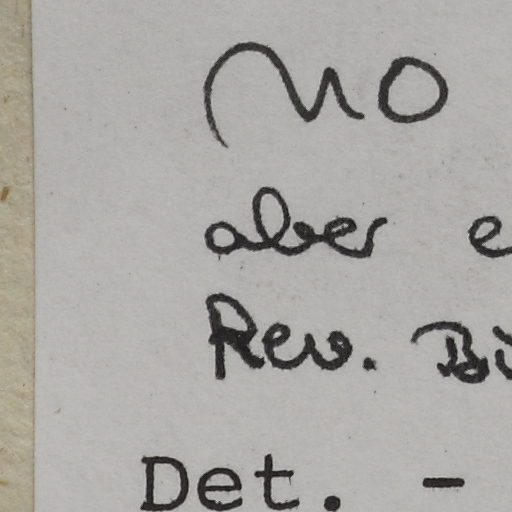 NO
aber e
Rev. Bi
Det. -